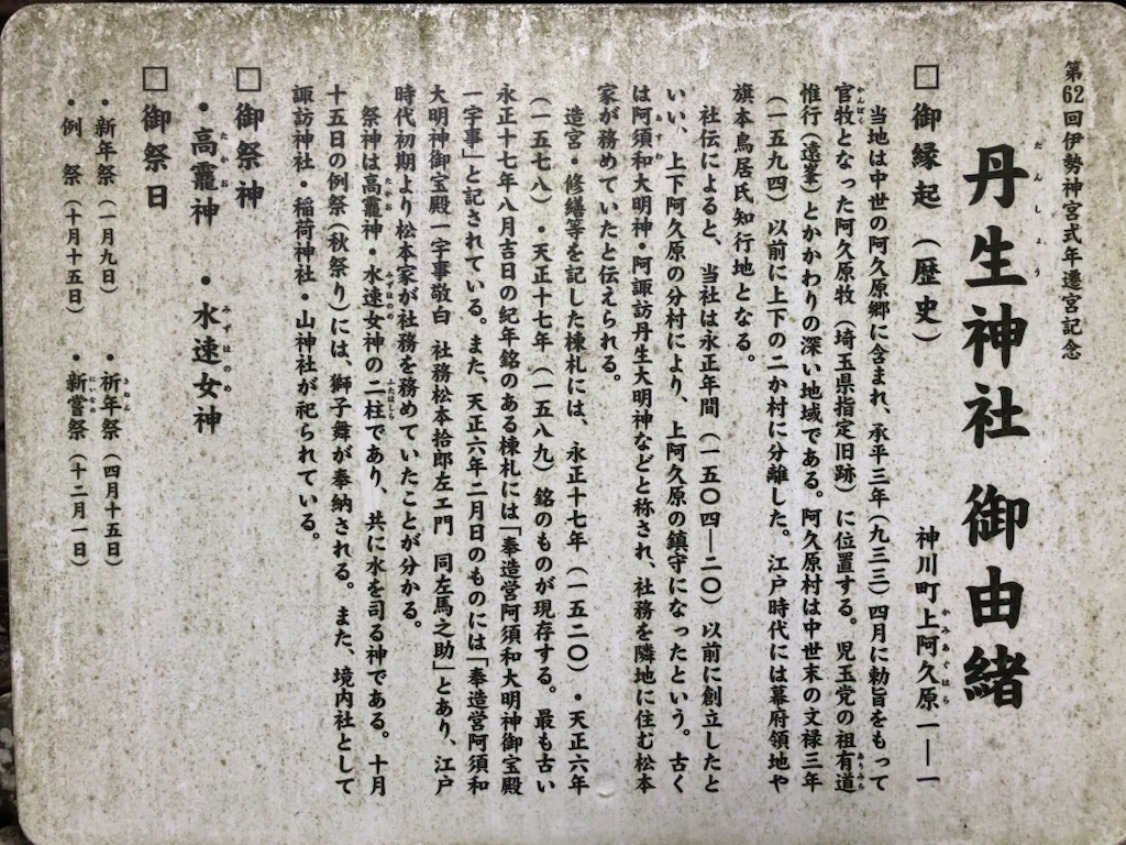 第62回伊勢神宮式年遷宮記念
丹生神社 御由緒
だんしょう
□御縁起（歴史）
神川町上阿久原一―一
かみあぐはら
当地は中世の阿久原郷に含まれ、承平三年（九三三）四月に勅旨をもって
官牧となった阿久原牧（埼玉県指定旧跡）に位置する。児玉党の祖有道
かんぼく
ありみち
惟行（遠峯）とかかわりの深い地域である。阿久原村は中世末の文禄三年
（一五九四）以前に上下の二か村に分離した。江戸時代には幕府領地や
旗本鳥居氏知行地となる。
社伝によると、当社は永正年間（一五〇四―二〇）以前に創立したと
いい、上下阿久原の分村により、上阿久原の鎮守になったという。古く
は阿須和大明神・阿諏訪丹生大明神などと称され、社務を隣地に住む松本
あすわ
家が務めていたと伝えられる。
造宮・修繕等を記した棟札には、永正十七年（一五二〇）・天正六年
（一五七八）・天正十七年（一五八九）銘のものが現存する。最も古い
永正十七年八月吉日の紀年銘のある棟札には「奉造営阿須和大明神御宝殿
一字事」と記されている。また、天正六年二月日のものには「奉造営阿須和
大明神御宝殿一字事敬白 社務松本拾郎左エ門 同左馬之助」とあり、江戸
時代初期より松本家が社務を務めていたことが分かる。
祭神は高龗神・水速女神の二柱であり、共に水を司る神である。十月
たかお
みずはのめ
ふたはしら
十五日の例祭（秋祭り）には、獅子舞が奉納される。また、境内社として
諏訪神社・稲荷神社・山神社が祀られている。
□御祭神
・高龗神 ・水速女神
たかお
みずはのめ
□御祭日
・新年祭（一月九日） ・祈年祭（四月十五日）
きねん
・例 祭（十月十五日） ・新嘗祭（十二月一日）
にいなめ